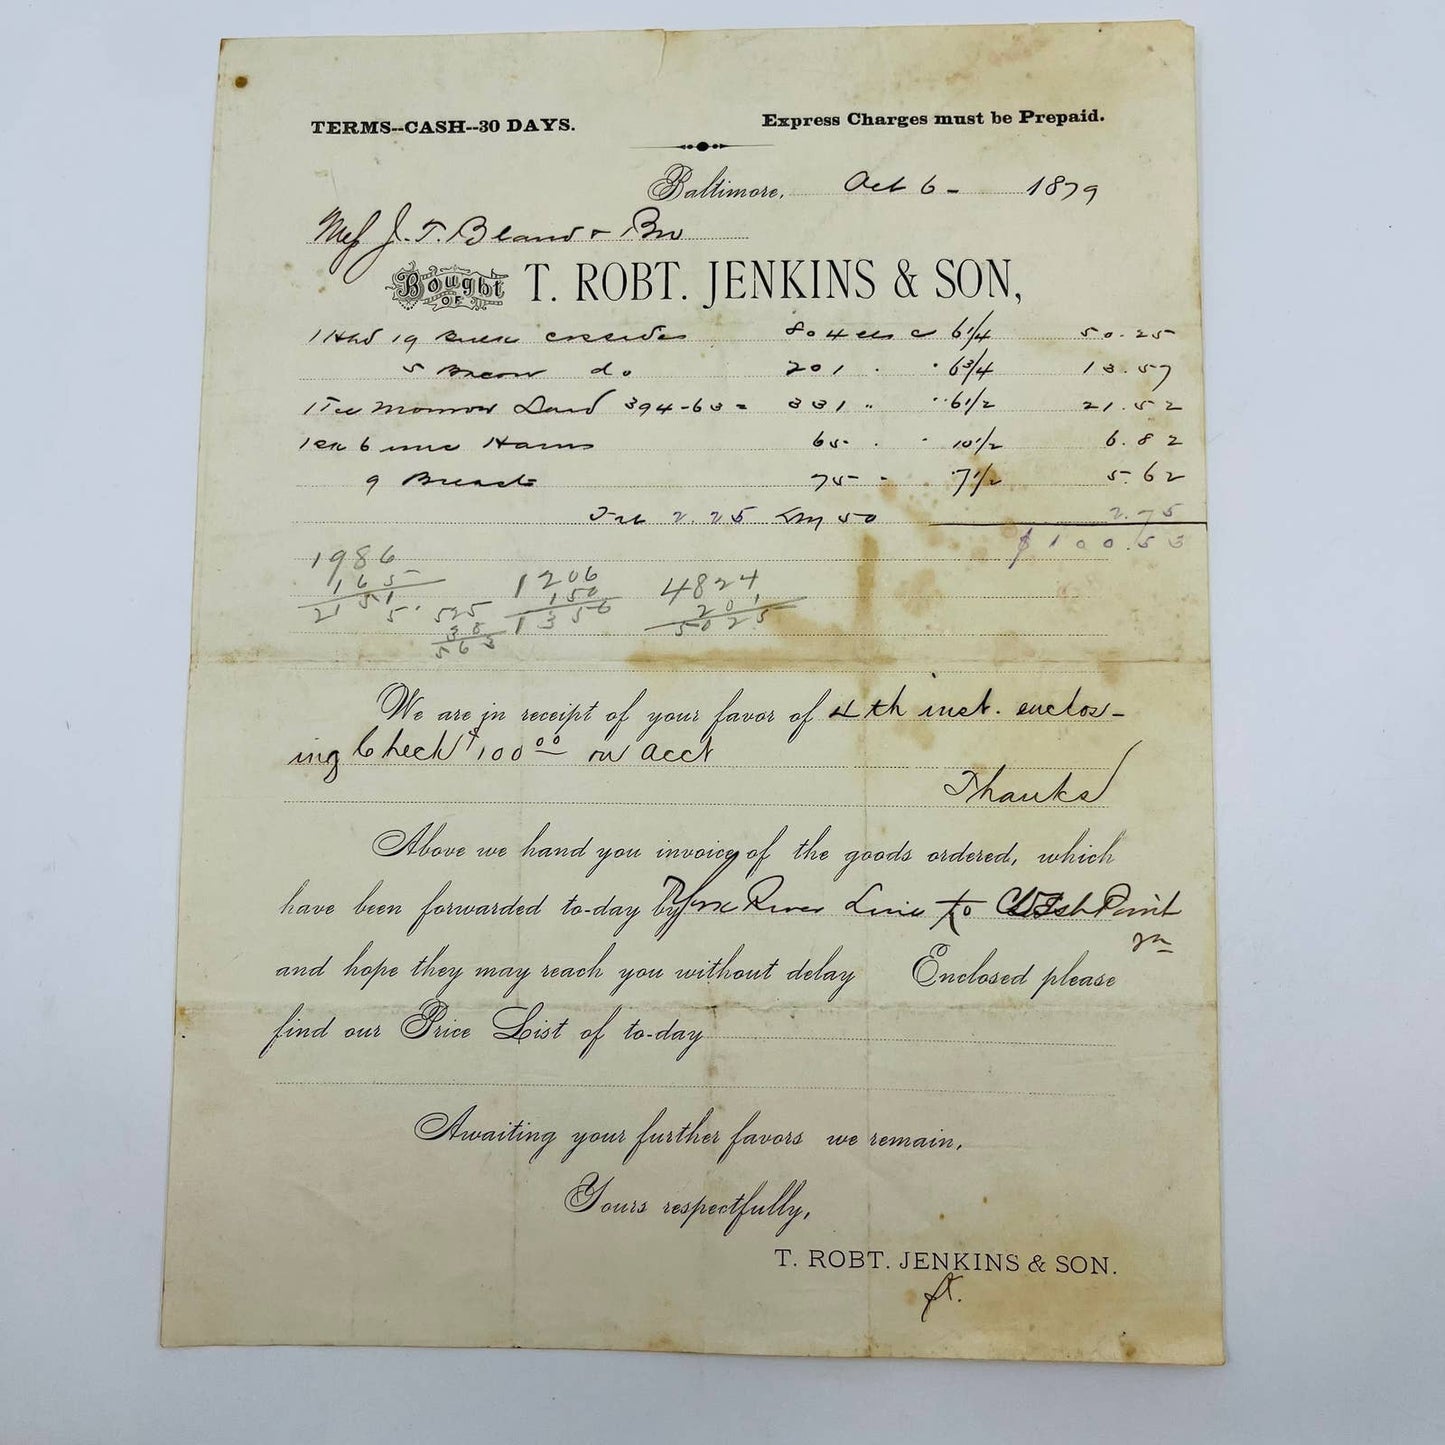 TERMS--CASH--30 DAYS. Express Charges must be Prepaid.
Baltimore, Oct 6 - 1879
J. T. Bland & Bro
Bought OF T. ROBT. JENKINS & SON,
1 Hhd 19 Bulk 804 6 1/4 50.25
5 Bacon do 201 " " 6 3/4 13.57
1 Tce Lard 394-63 = 331 " " 6 1/2 21.52
6 Hams 65 " " 10 1/2 6.82
9 Breasts 75 " 7 1/2 5.62
2.25 50 2.75
$100.53
1986 1206 4824
165 150 201
2151 5. 525 1356 5025
38
563
We are in receipt of your favor of 4th inst. enclos-
ing Check $100 00 on acct
Thanks
Above we hand you invoice of the goods ordered, which
have been forwarded to-day by York River Line to West Point
Va
and hope they may reach you without delay Enclosed please
find our Price List of to-day
Awaiting your further favors we remain,
Yours respectfully,
T. ROBT. JENKINS & SON.